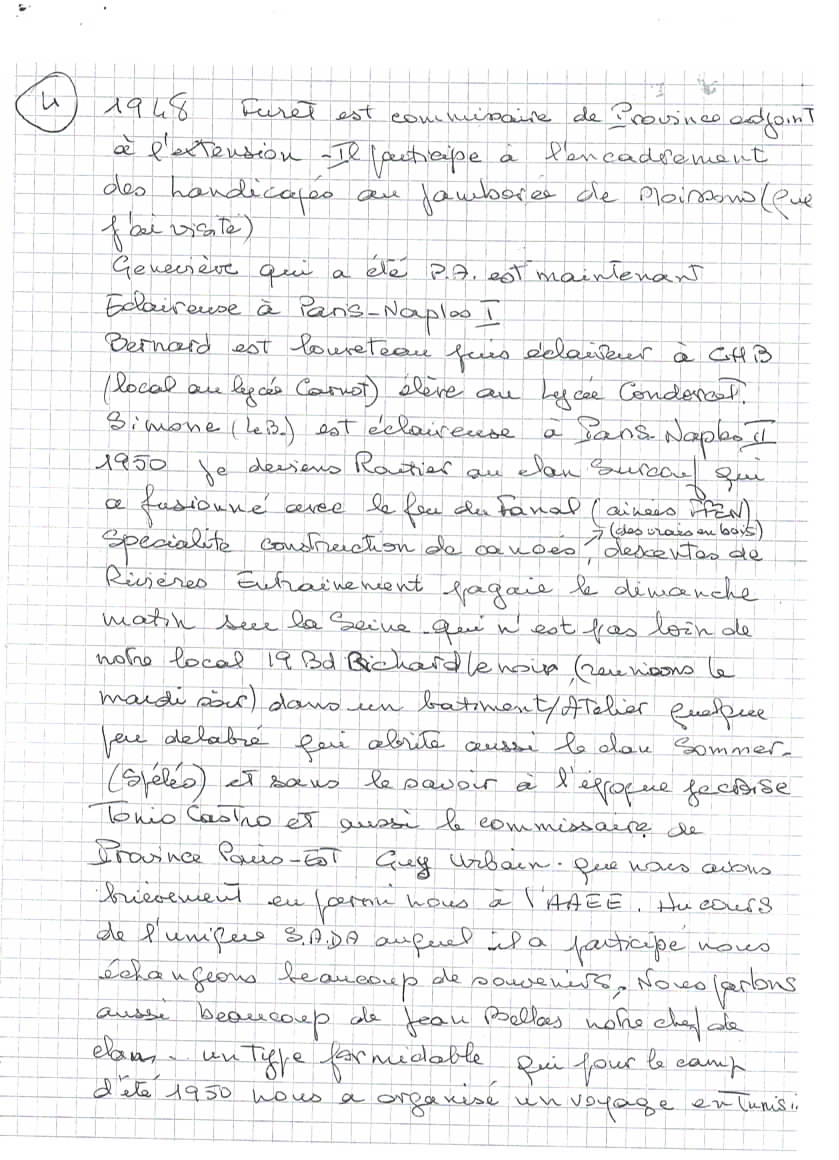 4
1948 Furet est commissaire de Province adjoint
à l'extension - Il participe à l'encadrement
des handicapés au jamborée de Moisson (que
j'ai visité)
Geneviève qui a été P.A. est maintenant
Eclaireuse à Paris-Naples I
Bernard est louveteau puis éclaireur à CHB
(local au lycée Carnot) élève au Lycée Condorcet.
Simone (LeB.) est éclaireuse à Paris-Naples II
1950 je deviens Routier au clan Surcouf qui
a fusionné avec le feu du Fanal (ainées FFEN)
(des vrais en bois)
Spécialité construction de canoés, descentes de
Rivières Entrainement pagaie le dimanche
matin sur la Seine qui n'est pas loin de
notre local 19 Bd Richard lenoir, (reunions le
mardi soir) dans un batiment/Atelier quelque
peu delabré qui abrite aussi le clan Sommer-
(Spéléo) et sans le savoir à l'époque je croise
Tonio Castro et aussi le commissaire de
Province Paris-Est Guy Urbain. que nous avons
brièvement eu parmi nous à l'AAEE. Au cours
de l'unique S.A.D.A auquel il a participé nous
échangeons beaucoup de souvenirs, Nous parlons
aussi beaucoup de Jean Bellas notre chef de
clan, un type formidable qui pour le camp
d'été 1950 nous a organisé un voyage en Tunisi..